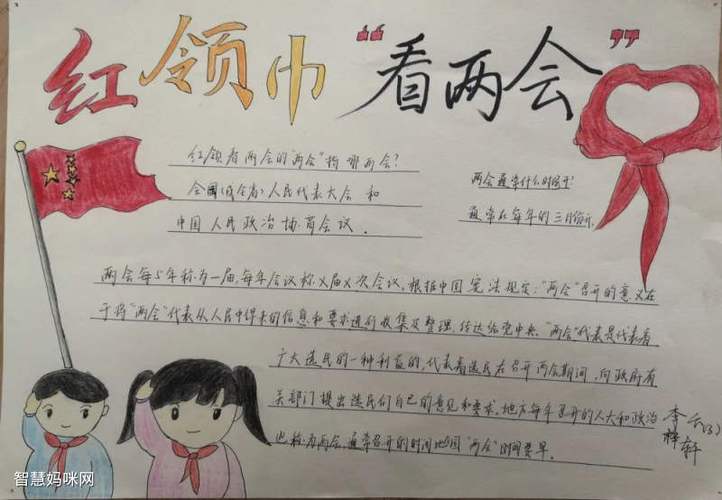 红领巾“看两会”
红领看两会的“两会”指哪两会?
全国(或全省)人民代表大会 和
中国人民政治协商会议.
两会通常什么时召开?
通常在每年的三月份开.
两会每5年称为一届,每年会议称X届X次会议,根据中国宪法规定:“两会”召开的意义在
于将“两会”代表从人民中得来的信息和要求进行收集及整理,传达给党中央.“两会”代表是代表着
广大选民的一种利益的,代表着选民在召开两会期间,向政府有
关部门提出选民们自己的意见和要求.地方每年召开的人大和政治
也称:为两会,通常召开的时间比全国“两会”时间要早.
李梓轩
六(3)
智慧妈咪网